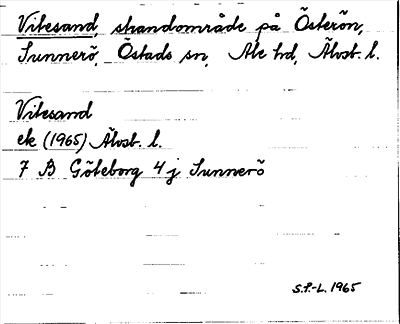 Vitesand, strandområde på Österön,
Sunnerö, Östads sn, Ale hd, Älvsb. l.
Vitesand
ek (1965) Älvsb. l.
7 B Göteborg 4 j Sunnerö
S.P.-L. 1965